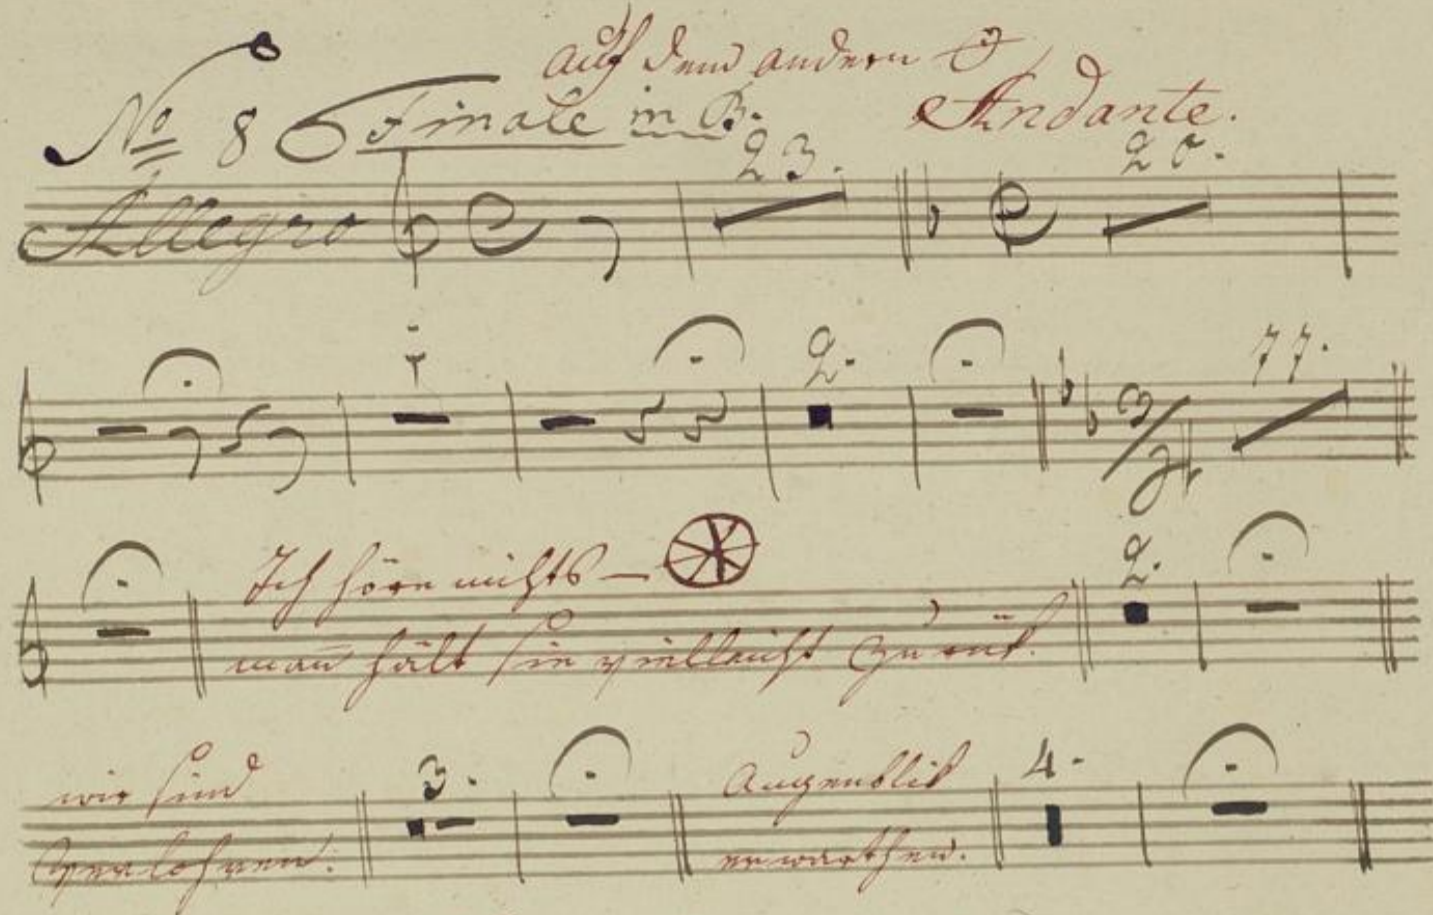 auf dem andern
No 8 Finale in B. Andante.
23. 20.
Allegro
1 2. 77.
3/4
Ich höre nichts —
man hält sie vielleicht zurük.
2.
wir sind
verlohren.
3.
Augenblik
erwarthen.
4.